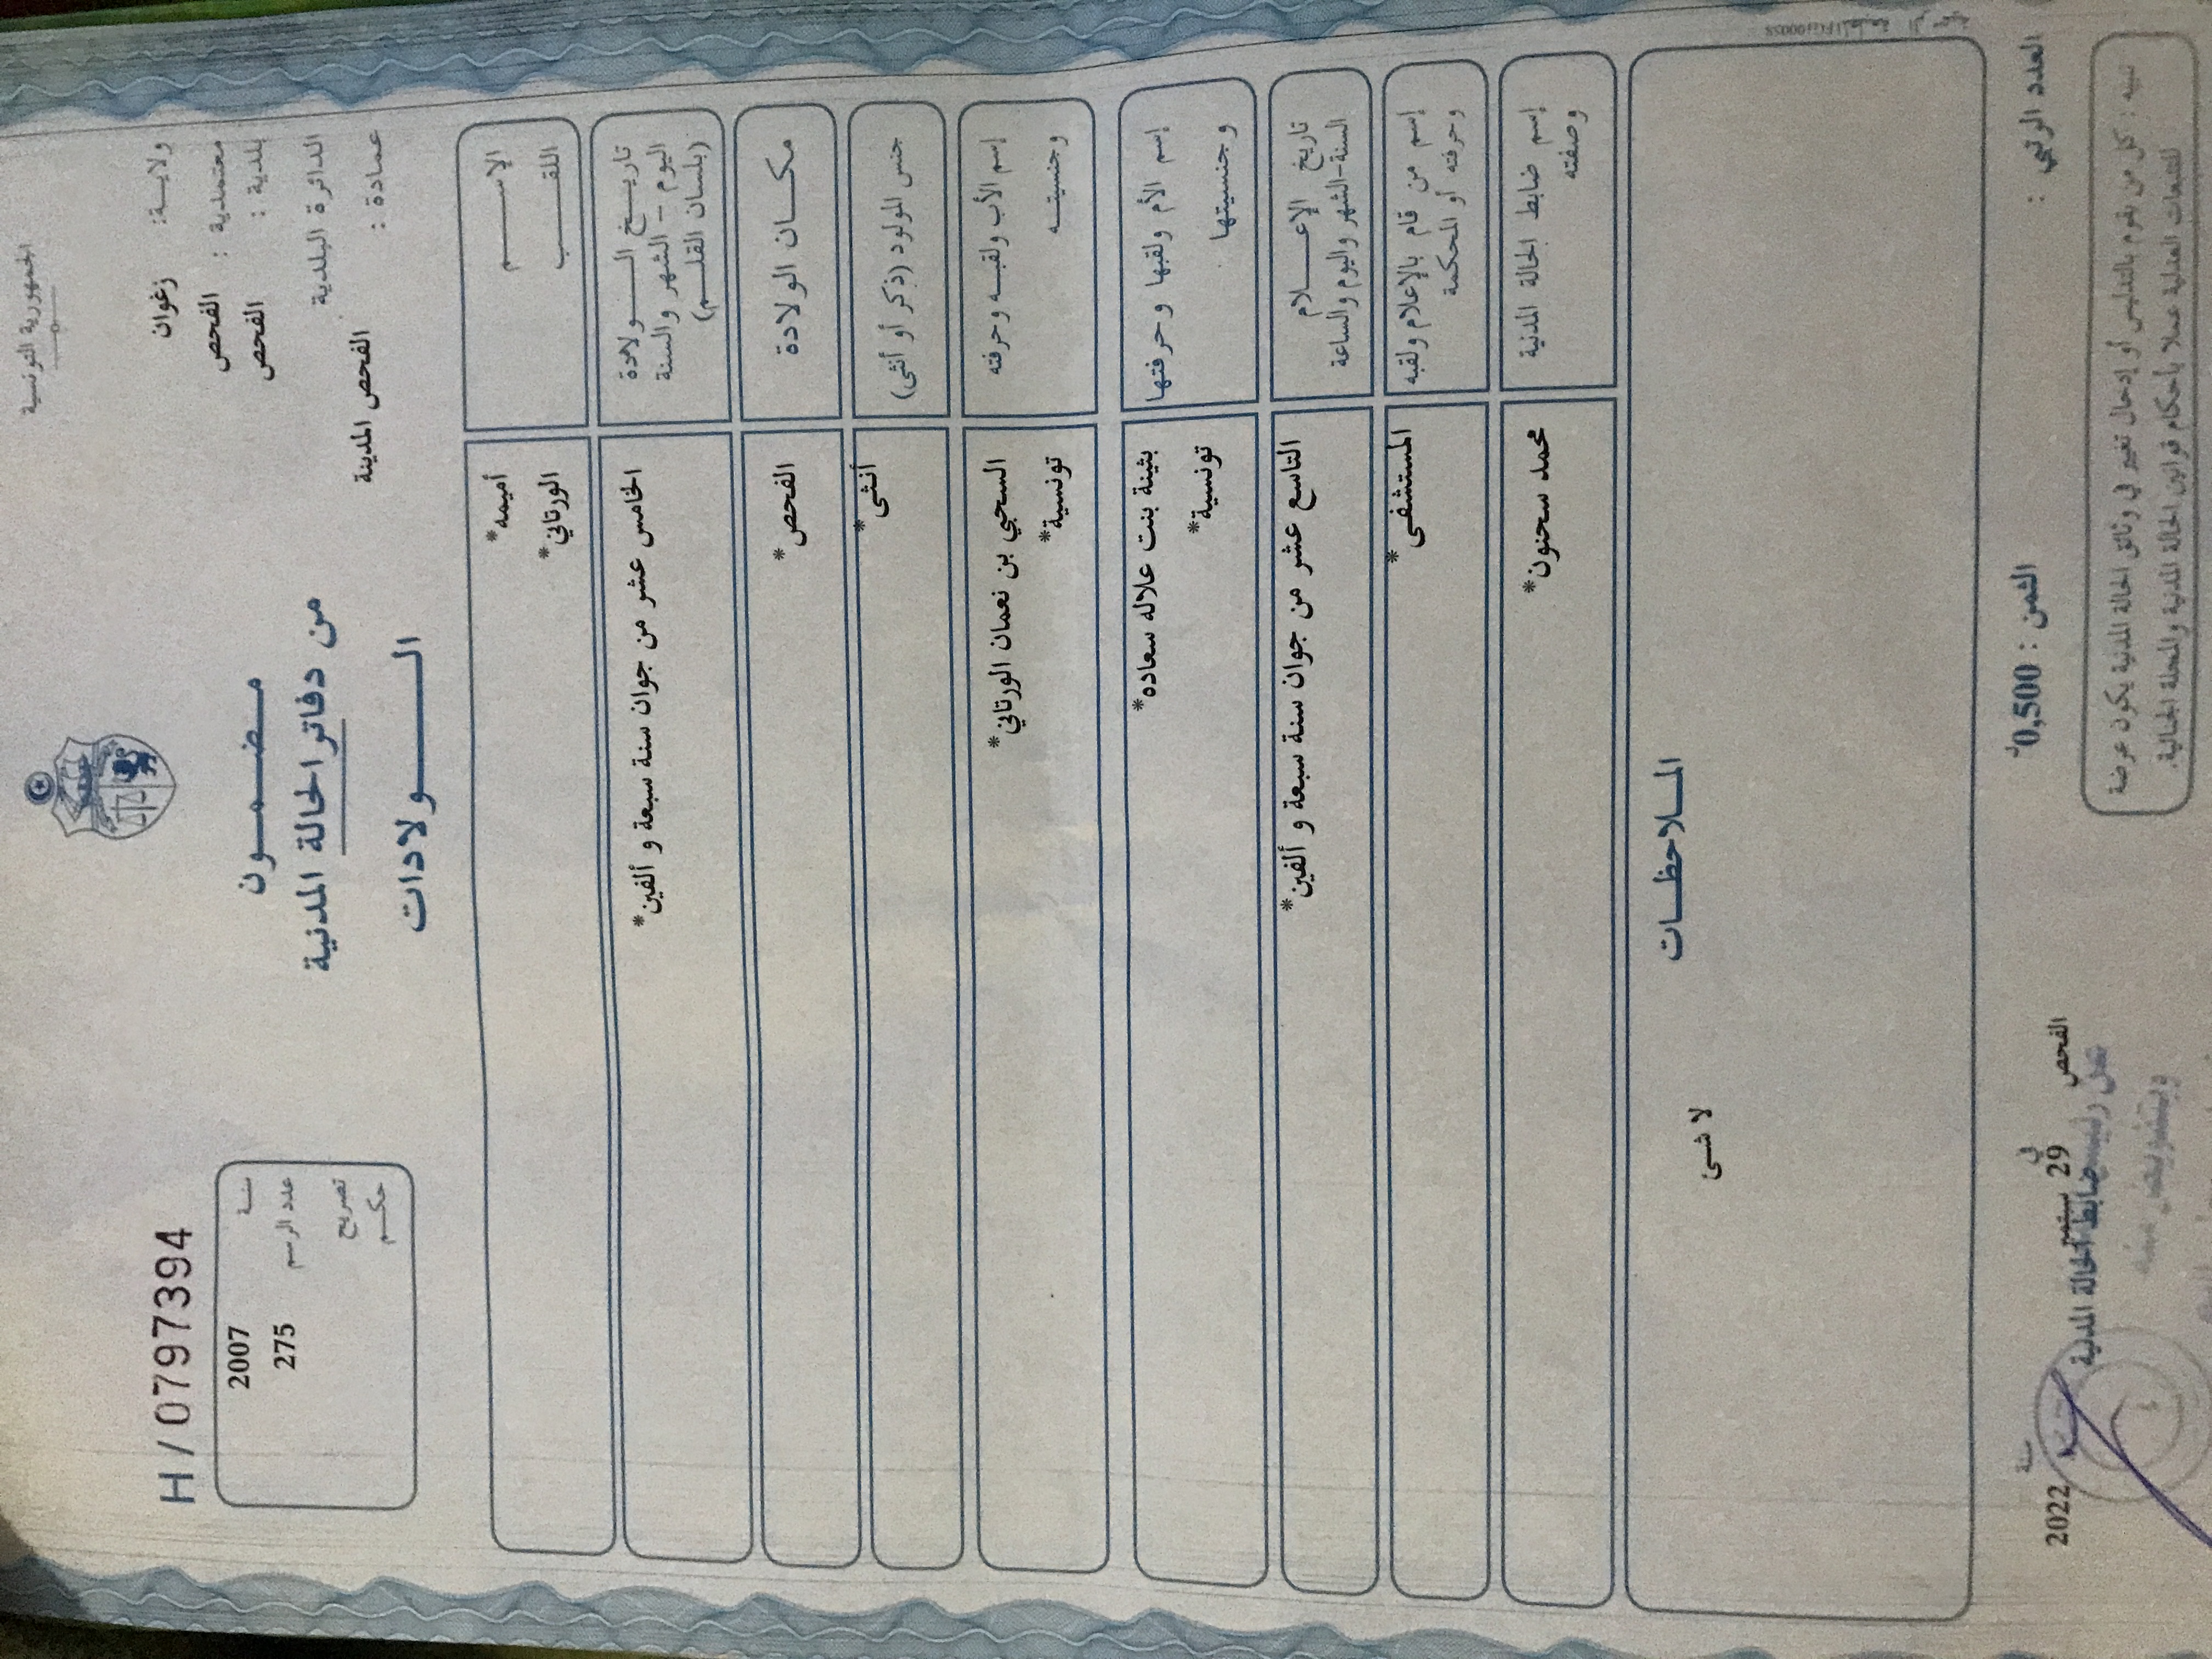 الجمهورية التونسية
ولايـة: زغوان
معتمدية : الفحص
بلدية : الفحص
الدائرة البلدية
الفحص المدينة
عمادة :
H/0797394
سنة 2007
عدد الرسم 275
تصريح
حكم
مضمون
من دفاتر الحالة المدنية
الولادات
الإسم أميمه*
اللقب الورتاني*
تاريخ الولادة
اليوم - الشهر والسنة
(بلسان القلم)
الخامس عشر من جوان سنة سبعة و ألفين*
مكان الولادة الفحص*
جنس المولود (ذكر أو أنثى) أنثى*
إسم الأب ولقبه وحرفته السحبي بن نعمان الورتاني*
وجنسيته تونسية*
إسم الأم ولقبها وحرفتها بثينة بنت علاله سعاده*
وجنسيتها تونسية*
تاريخ الإعلام
السنة-الشهر واليوم والساعة
التاسع عشر من جوان سنة سبعة و ألفين*
إسم من قام بالإعلام ولقبه
وحرفته أو المحكمة
المستشفى*
إسم ضابط الحالة المدنية
وصفته
محمد سحنون*
الملاحظات
لا شئ
العدد الرتبي :
الثمن : 0,500د
الفحص في 29 سبتمبر سنة 2022
ضابط الحالة المدنية
تنبيه : كل من يقوم بالتدليس أو إدخال تغيير في وثائق الحالة المدنية يكون عرضة
للتتبعات العدلية عملا بأحكام قوانين الحالة المدنية والمجلة الجنائية.